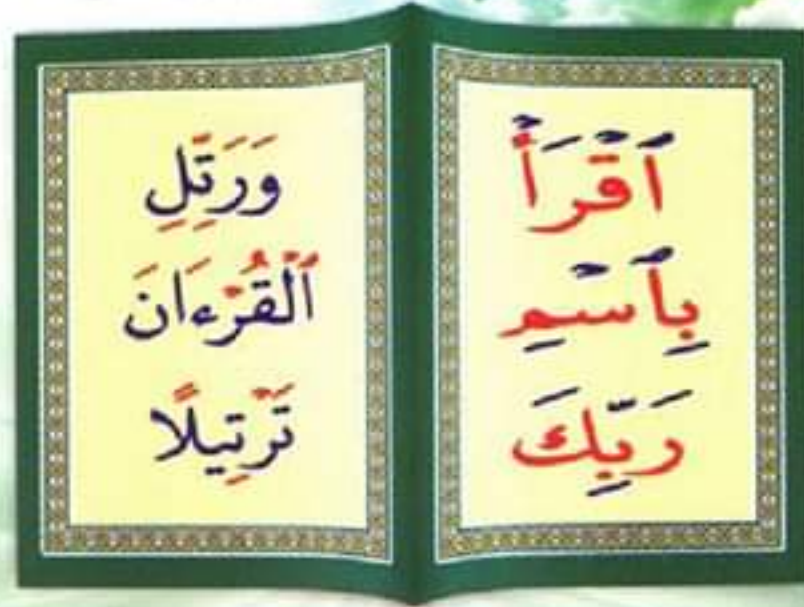 ٱقْرَأْ
بِٱسْمِ
رَبِّكَ
وَرَتِّلِ
ٱلْقُرْءَانَ
تَرْتِيلًا